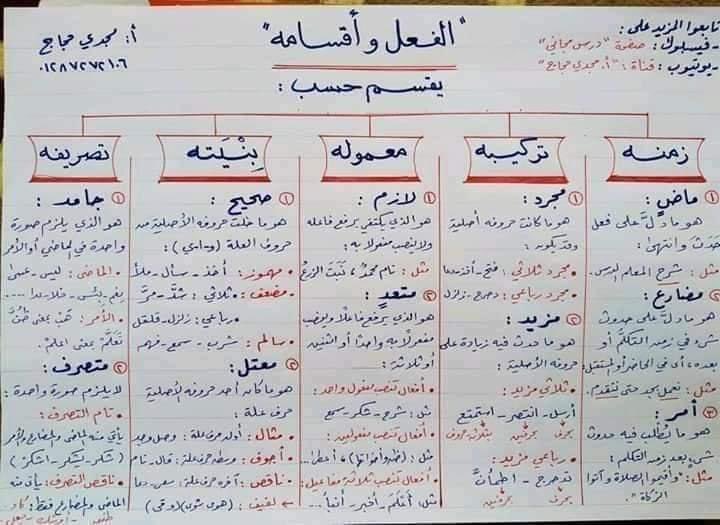 تابعوا المزيد على:
- فيسبوك: صفحة "درس مجاني"
- يوتيوب: قناة: "أ. مجدي حجاج"
"الفعل وأقسامه"
أ: مجدي حجاج
٠١٢٨٧٢٧٢١٠٦
يقسم حسب:
زمنه
① ماضٍ:
هو ما دلَّ على فعل
حَدَثَ وانتهى:
مثل: شرح المعلم الدرس.
② مضارع:
هو ما دلَّ على حدوث
شيء في زمن التكلم أو
بعده، أي في الحاضر أو المستقبل
مثل: نعمل بجد حتى نتقدم.
③ أمر:
هو ما يُطلب فيه حدوث
شيء بعد زمن التكلم:
مثل: "وأقيموا الصلاة وآتوا
الزكاة"
تركيبه
① مجرد:
هو ما كانت حروفه أصلية
وقد يكون:
• مجرد ثلاثي: فتح - أخذ - دعا
• مجرد رباعي: دحرج - زلزل
② مزيد:
هو ما حدث فيه زيادة على
حروفه الأصلية:
• ثلاثي مزيد:
أرسل - انتصر - استمتع
بحرف بحرفين بثلاثة حروف
• رباعي مزيد:
تدحرج - اطمأنَّ
بحرف بحرفين
معموله
① لازم:
هو الذي يكتفي برفع فاعله
ولا ينصب مفعولا به:
مثل: نام محمدٌ، نَبَتَ الزرعُ
② متعدٍ:
هو الذي يرفع فاعلًا وينصب
مفعولًا به واحدًا أو اثنين
أو ثلاثة:
• أفعال تنصب مفعول واحد:
مثل: شرح - شكر - سمع
• أفعال تنصب مفعولين:
مثل: (ظن وأخواتها)، أعطى...
• أفعال تنصب ثلاثة مفاعيل:
مثل: أَعْلَمَ - أخبر - أنبأ...
بِنْيَته
① صحيح:
هو ما خلت حروفه الأصلية من
حروف العلة (و-ا-ي):
• مهموز: أخذ - سأل - ملأ
• مضعف: ثلاثي: شدَّ - مرَّ
رباعي: زلزل - قلقل
• سالم: شرب - سمع - فهم
② معتل:
هو ما كان أحد حروفه الأصلية
حرف علة:
• مثال: أوله حرف علة: وصل - وجد
• أجوف: وسطه حرف علة: قال - نام
• ناقص: آخره حرف علة: سعى - دعا
← لفيف: (هوى - وقى)
تصريفه
① جامد:
هو الذي يلزم صورة
واحدة في الماضي أو الأمر
• الماضي: ليس - عسى
نعم - بئس - خلا - عدا ....
• الأمر: هَبْ بمعنى ظُنَّ
تَعَلَّمْ بمعنى اعلم.
② متصرف:
لا يلزم صورة واحدة:
• تام التصرف:
يأتي منه الماضي والمضارع والأمر
(شكر - يشكر - اشكر)
• ناقص التصرف: يأتي منه
الماضي والمضارع فقط: كاد